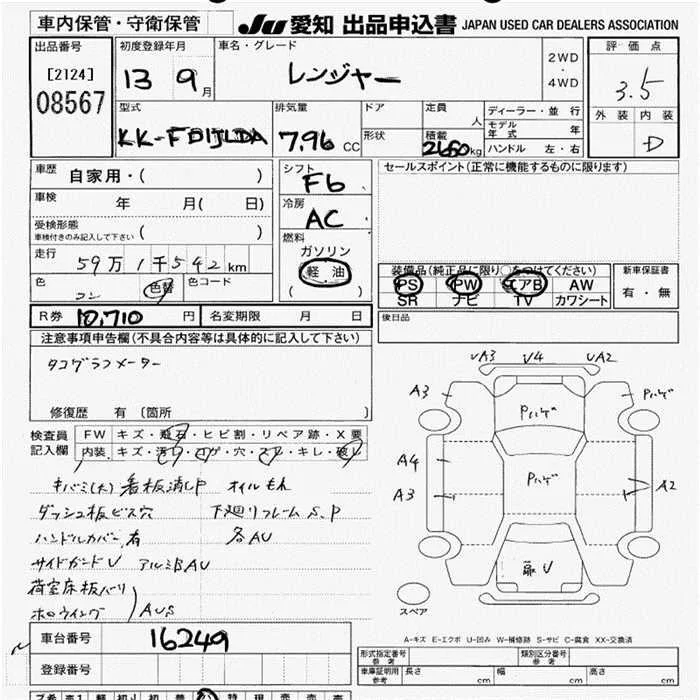 車内保管・守衛保管
JU 愛知 出品申込書 JAPAN USED CAR DEALERS ASSOCIATION
出品番号
[2124]
08567
初度登録年月
13 9月
車名・グレード
レンジャー
2WD
・
4WD
評価点
3.5
外装 内装
D
型式
KK-FD1JLDA
排気量
7.96 CC
ドア
形状
定員
人
積載
2650kg
ディーラー・並行
モデル年式 年
ハンドル 左・右
車歴
自家用・( )
車検
年 月( 日)
受検形態
車検付きのみ記入して下さい ( )
走行
59万1千542km
色
コン
色替
色コード
シフト
F6
冷房
AC
燃料
ガソリン
軽油
( )
セールスポイント(正常に機能するものに限ります)
装備品(純正品に限り○をつけてください)
PS PW エアB AW
SR ナビ TV カワシート
新車保証書
有・無
R券 10,710 円
名変期限 月 日
後日品
注意事項申告欄(不具合内容等は具体的に記入して下さい)
タコグラフメーター
修復歴 有 [箇所 ]
検査員
記入欄
FW キズ・飛石・ヒビ割・リペア跡・X要
内装 キズ・汚レ・コゲ・穴・スレ・キレ・破レ
キバミ(大) 看板消しP オイルもれ
ダッシュ板ビス穴 下廻りフレームS、P
ハンドルカバー有 各AU
サイドガードU アルミBAU
荷室床板バリ
ホロウイング
AUS
UA3 U4 UA2
A3
Pハゲ
Pハゲ
A4
A3
Pハゲ
A2
U
スペア
A-キズ E-エクボ U-凹み W-補修跡 S-サビ C-腐食 XX-交換済
車台番号
16249
登録番号
形式指定番号
参考
類別区分番号
参考
車庫証明用
参考
長さ cm
幅 cm
高さ cm